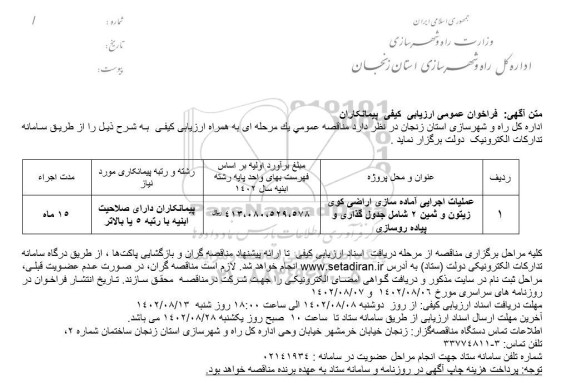 جمهوری اسلامی ایران
وزارت راه و شهرسازی
اداره کل راه و شهرسازی استان زنجان
شماره :
تاریخ :
پیوست :
متن آگهی: فراخوان عمومی ارزیابی کیفی پیمانکاران
اداره کل راه و شهرسازی استان زنجان در نظر دارد مناقصه عمومي يك مرحله ای به همراه ارزیابی کیفـی بـه شـرح ذیـل را از طریـق سـامانه
تدارکات الکترونیک دولت برگزار نماید .
ردیف
عنوان و محل پروژه
مبلغ برآورد اولیه بر اساس فهرست بهای واحد پایه رشته ابنیه سال ۱۴۰۲
رشته و رتبه پیمانکاری مورد نیاز
مدت اجراء
۱
عملیات اجرایی آماده سازی اراضی کوی زیتون و ثمین ۲ شامل جدول گذاری و پیاده روسازی
۴۱۳،۰۸۰،۵۲۹،۵۷۸ ریال
پیمانکاران دارای صلاحیت ابنیه با رتبه ۵ یا بالاتر
۱۵ ماه
کلیه مراحل برگزاری مناقصه از مرحله دریافت اسناد ارزیابی کیفی تا ارائه پیشنهاد مناقصه گران و بازگشایی پاکت‌ها ، از طریق درگاه سامانه
تدارکات الکترونیکی دولت (ستاد) به آدرس www.setadiran.ir انجام خواهد شد. لازم است مناقصه گران، در صورت عـدم عضـویت قبلـی،
مراحل ثبت نام در سایت مذکور و دریافت گـواهی امضـای الکترونیکـی را جهـت شـرکت درمناقصـه محقـق سـازند. تـاریخ انتشـار فراخـوان در
روزنامه های سراسری مورخ ۱۴۰۲/۰۸/۰۶ و ۱۴۰۲/۰۸/۰۷
مهلت دریافت اسناد ارزیابی کیفی: از روز دوشنبه ۱۴۰۲/۰۸/۰۸ الی ساعت ۱۸:۰۰ روز شنبه ۱۴۰۲/۰۸/۱۳
آخرین مهلت ارسال اسناد ارزیابی از طریق سامانه ستاد تا ساعت ۱۰ صبح روز یکشنبه ۱۴۰۲/۰۸/۲۸ می باشد.
اطلاعات تماس دستگاه مناقصه‌گزار: زنجان خیابان خرمشهر خیابان وحی اداره کل راه و شهرسازی استان زنجان ساختمان شماره ۲،
تلفن تماس: ۳-۳۳۷۷۴۸۱۱
شماره تلفن سامانه ستاد جهت انجام مراحل عضویت در سامانه : ۰۲۱۴۱۹۳۴
توجه: پرداخت هزینه چاپ آگهی در روزنامه و سامانه ستاد به عهده برنده مناقصه خواهد بود.